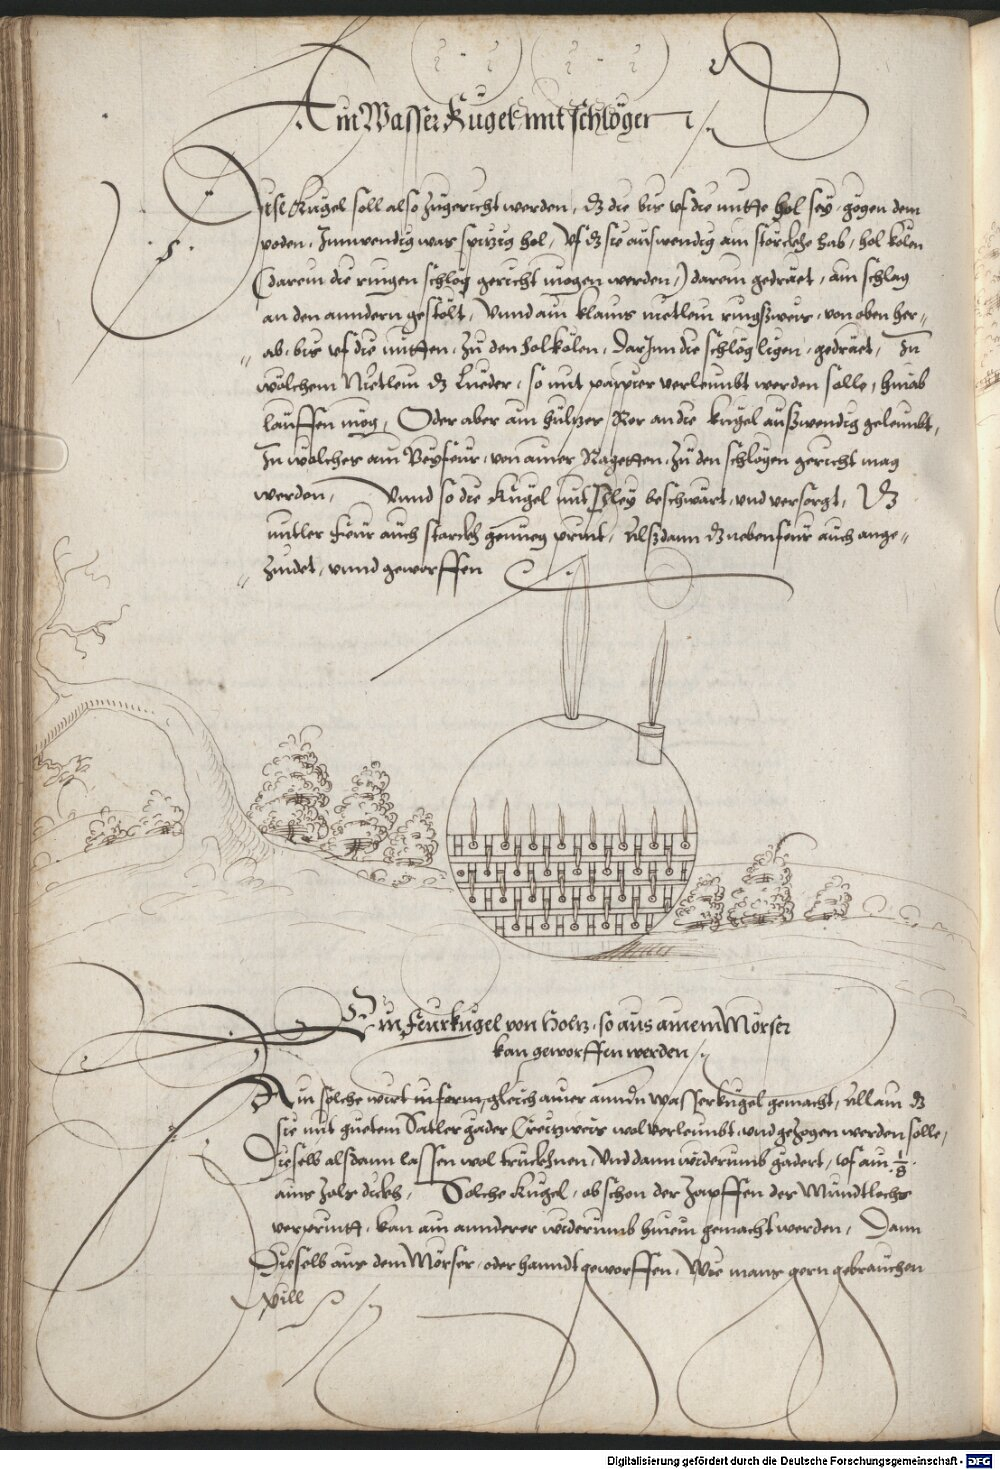 Ain Wasser Kugel mit schlöger
Dise Kugel soll also zugericht werden, dz die bis uf die mitte hol sey, gögen dem
poden, Innwendig was spitzig hol, Uf dz sie auswendig am störckhe hab, hol kolen
(darein die ringen schlög gericht mögen werden,) darein gedräet, ain schlag
an den anndern gestölt, Unnd ain klains nietlein ringsweis, von oben her-
ab, bis uf die mitten, zu den holkolen, Dar Inn die schlög ligen, gedräet, In
wölchem Nietlein dz Lueder, so mit pappier verleimbt werden solle, hinab
lauffen mög, Oder aber ain hultzer Rör an die kugel außwendig geleimbt,
In wölches ain Beyfeur, von ainer Ragetten, zu den schlögen gericht mag
werden, Unnd so die Kugel mit Bley beschwärt, und versorgt, Dz
mitler Feur auch starckh genueg print, Alßdann dz nebenfeur auch ange-
zindet, unnd geworffen
Ein Feurkugel von Holtz, so aus ainem Mörser
kan geworffen werden
Ain solche wirt in form, gleich ainer anndern wasserkugel gemacht, Allain dz
sie mit guetem Satler gäder Creitzweis wol verleimbt, und gezogen werden solle,
Dieselb alsdann lassen wol trückhnen, Und dann widerumb gädert, uf ain 1/8
ains Zols dickh, Solche Kugel, ob schon der Zapffen des Mundtlochs
verprintt, kan ain annderer widerumb hinein gemacht werden, Dann
Dieselb aus dem Mörser, oder hanndt geworffen, Wie mans gern gebrauchen
will
Digitalisierung gefördert durch die Deutsche Forschungsgemeinschaft - DFG